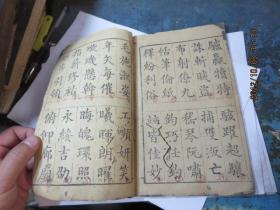 驢騾犢特駭躍超驤
誅斬賊盜捕獲叛亡
布射僚丸嵇琴阮嘯
恬筆倫紙鈞巧任釣
釋紛利俗並皆佳妙
毛施淑姿工嚬妍笑
年矢每催曦暉朗曜
璇璣懸斡晦魄環照
指薪修祜永綏吉劭
矩步引領俯仰廊廟